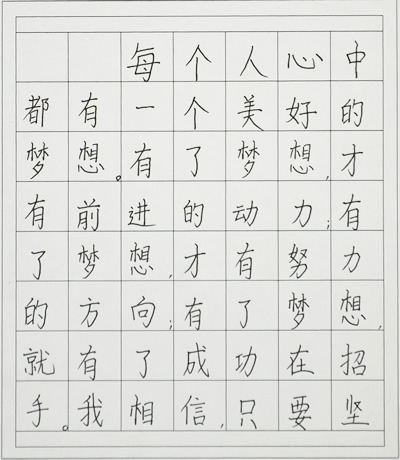 每个人心中
都有一个美好的
梦想。有了梦想,才
有前进的动力;有
了梦想,才有努力
的方向;有了梦想,
就有了成功在招
手。我相信,只要坚